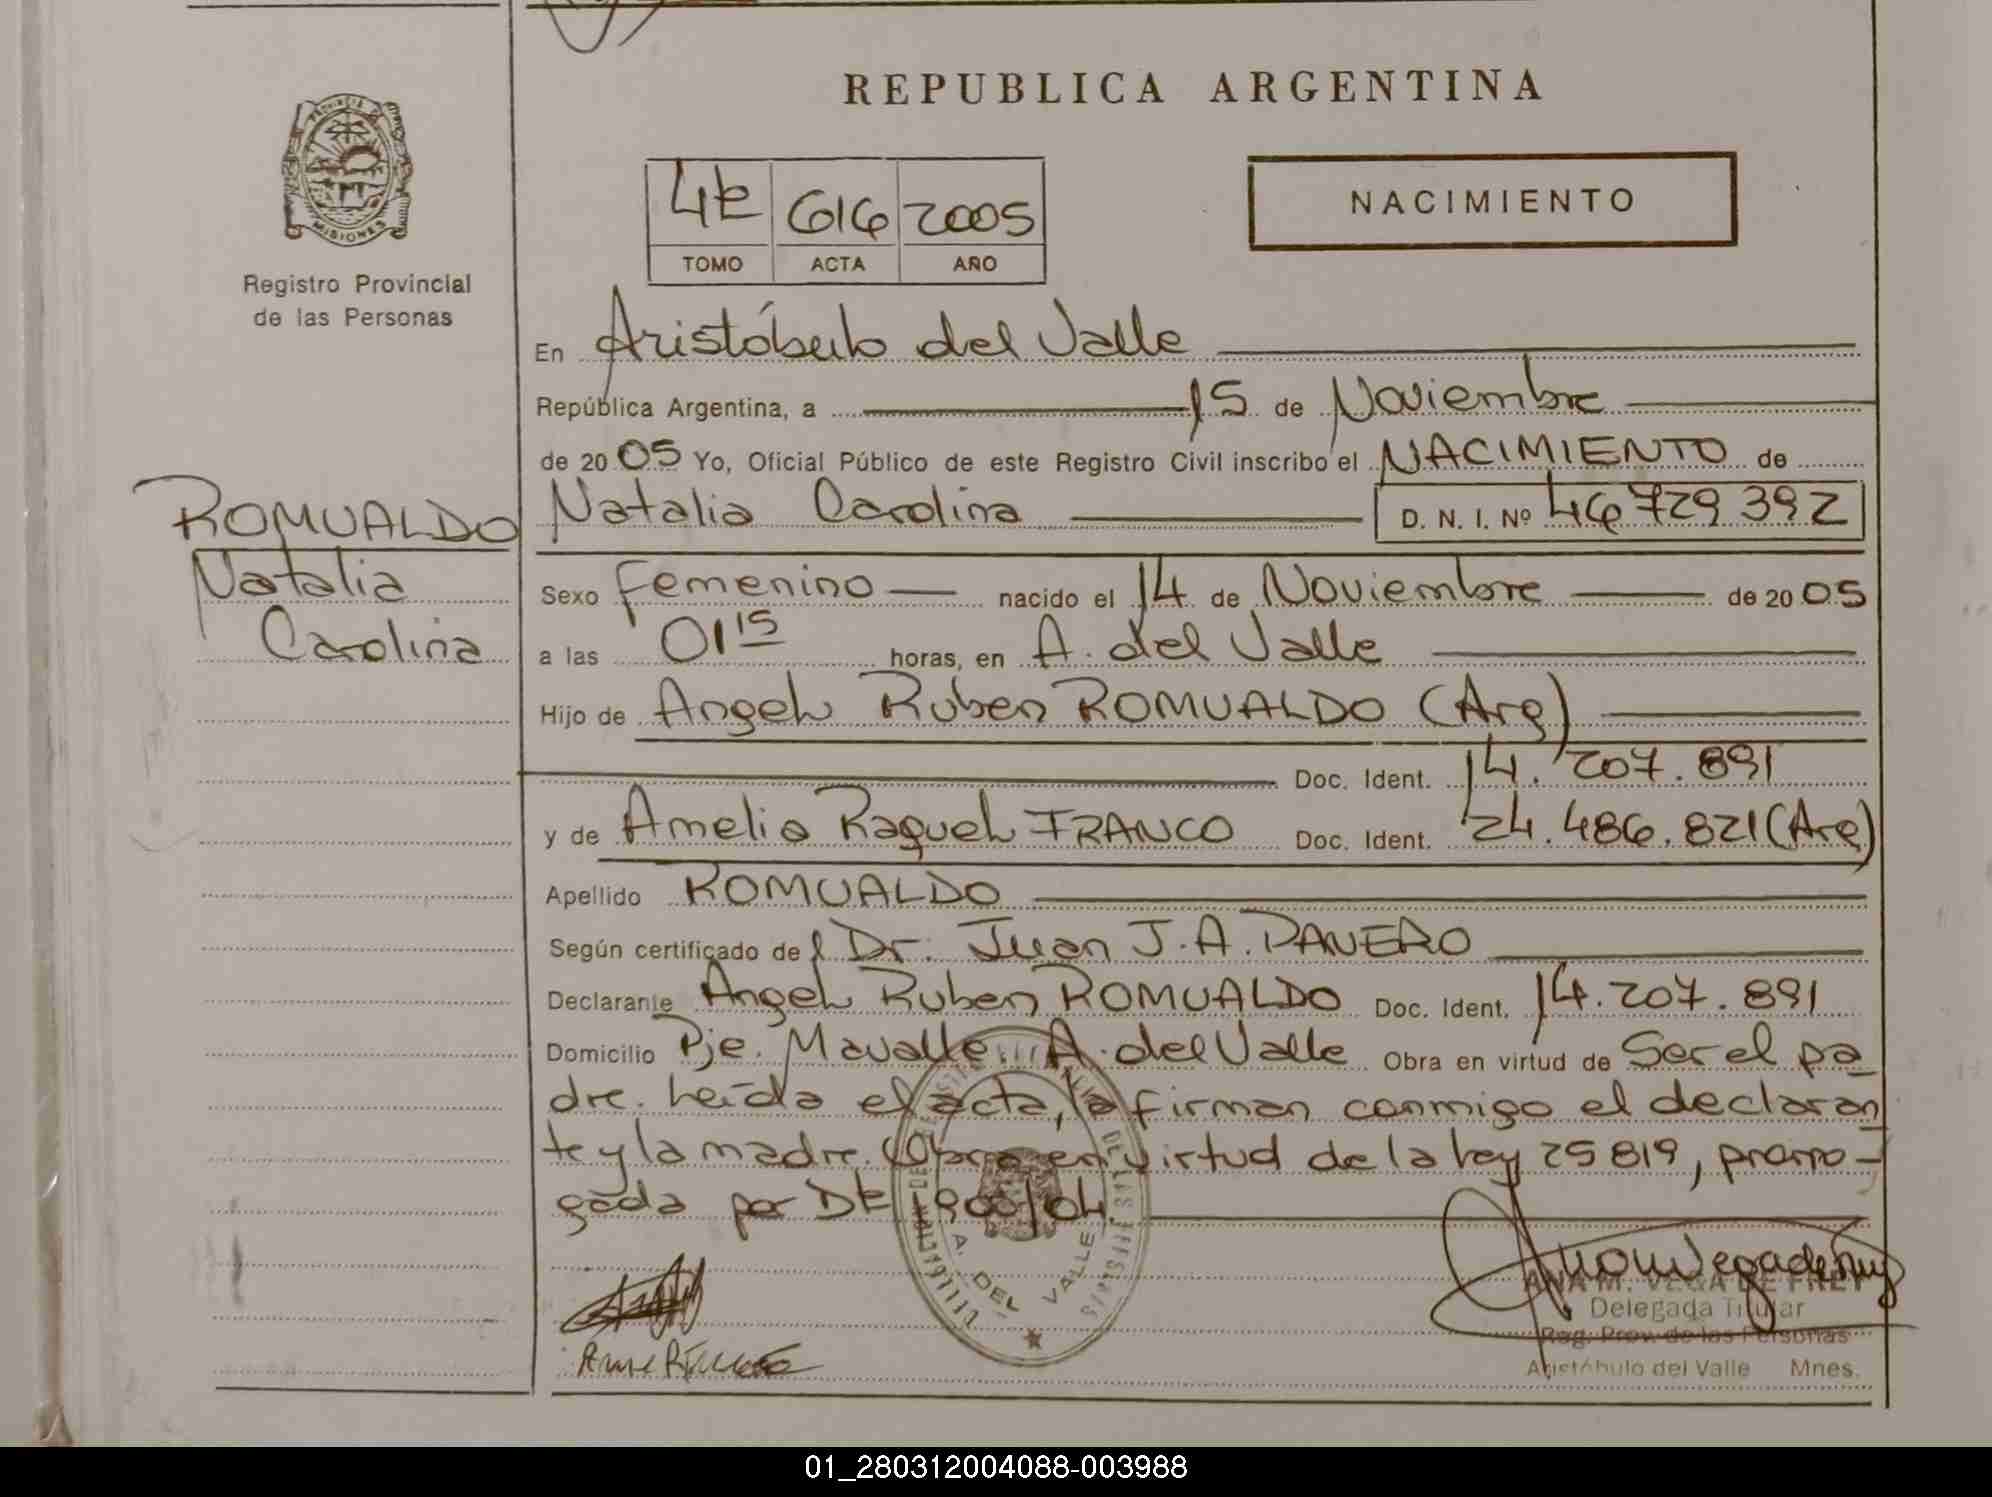 REPUBLICA ARGENTINA
PROVINCIA DE
MISIONES
Registro Provincial
de las Personas
616 2005
TOMO ACTA AÑO
NACIMIENTO
En Aristóbulo del Valle
República Argentina, a 15 de Noviembre
de 2005 Yo, Oficial Público de este Registro Civil inscribo el NACIMIENTO de
Natalia Carolina D. N. I. Nº 46729392
ROMUALDO
Natalia
Carolina
Sexo Femenino nacido el 14 de Noviembre de 2005
a las 01 15 horas, en A. del Valle
Hijo de Angel Ruben ROMUALDO (Arg)
Doc. Ident. 14.207.891
y de Amelia Raquel FRANCO Doc. Ident. 24.486.821 (Arg)
Apellido ROMUALDO
Según certificado del Dr. Juan J. A. DANERO
Declarante Angel Ruben ROMUALDO Doc. Ident. 14.207.891
Domicilio Pje. Mavalle A. del Valle Obra en virtud de Ser el pa_
dre. Leída el acta, la firman conmigo el declaran
te y la madre. Obra en virtud de la Ley 25819, prorro-
gada por 1900/04
A. DEL VALLE
ANA M. VEGA DE FREY
Delegada Titular
Reg. Prov. de las Personas
Aristóbulo del Valle Mnes.
01_280312004088-003988